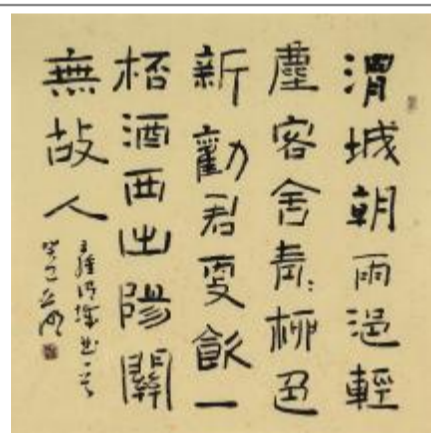 渭城朝雨浥輕
塵客舍青:柳色
新勸君更飲一
桮酒西出陽關
無故人
王維詩一首